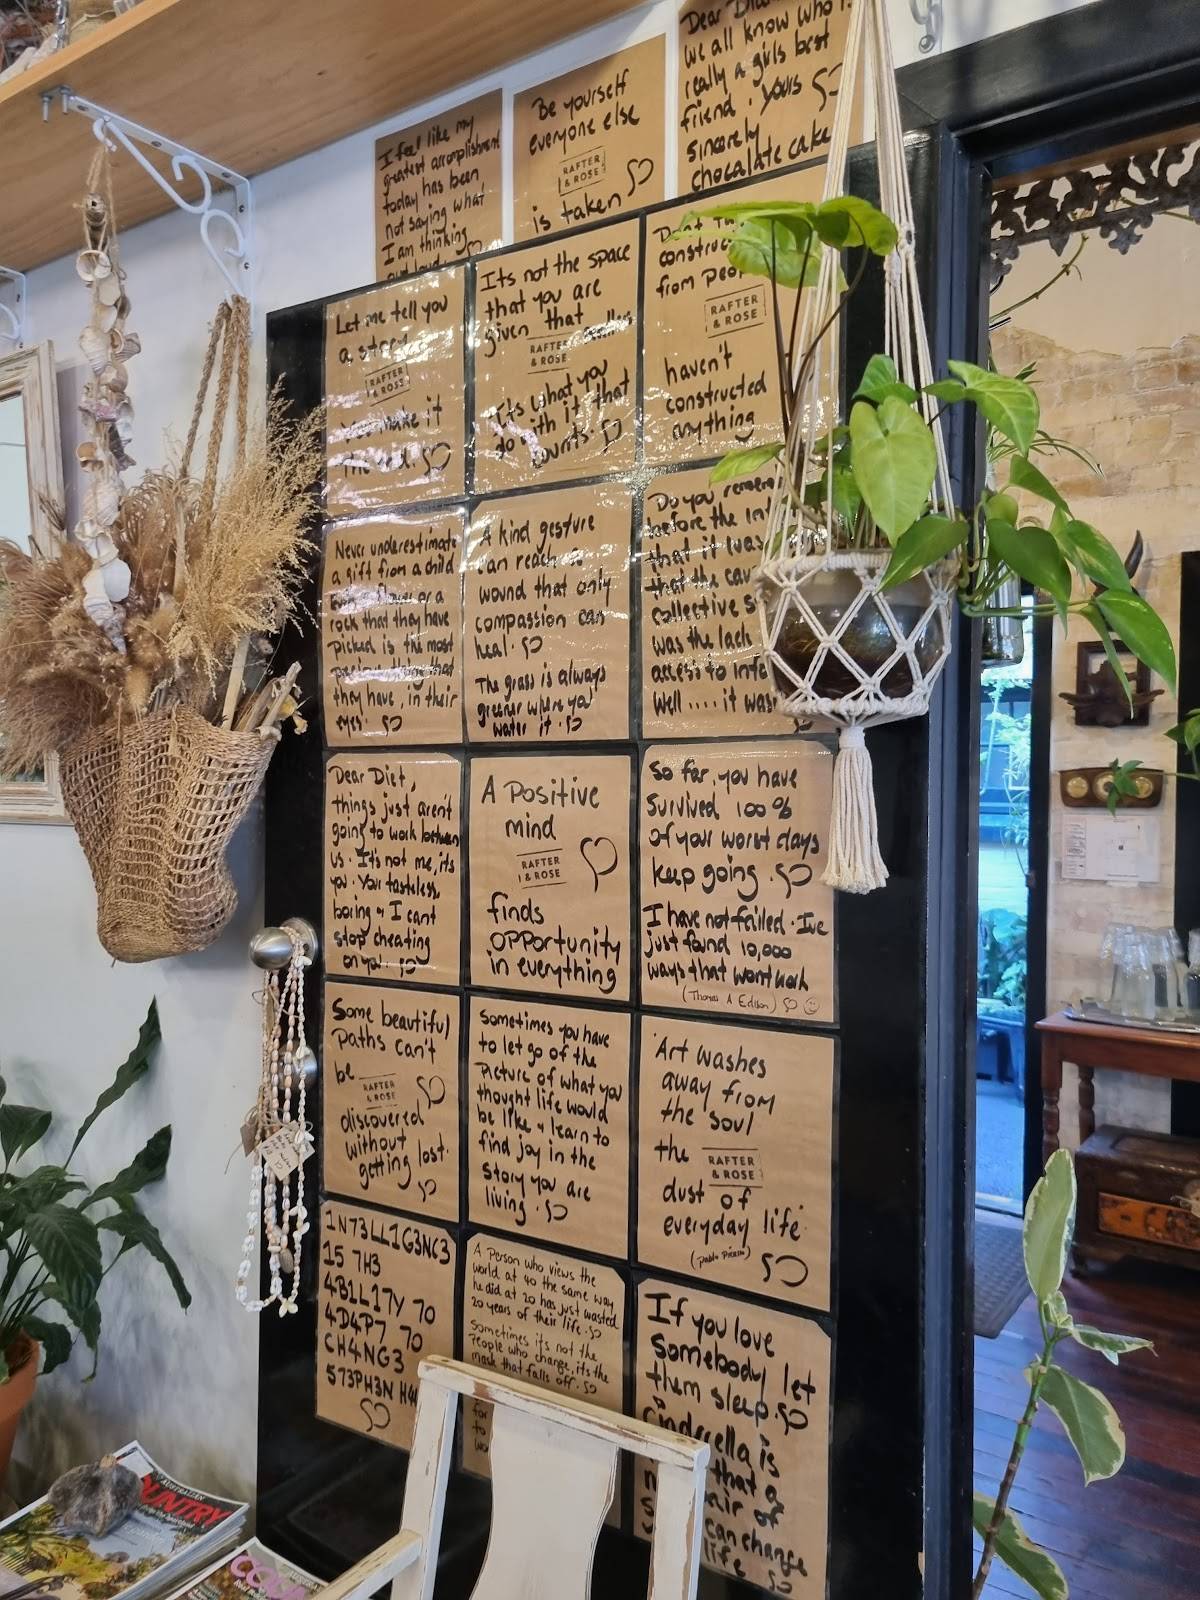 I feel like my
greatest accomplishment
today has been
not saying what
I am thinking
out loud
Be yourself
everyone else
RAFTER
& ROSE
is taken
Dear
we all know who
really a girls best
friend. yours
sincerely
chocalate cake
Let me tell you
a
RAFTER
& ROSE
make it
Its not the space
that you are
given that
RAFTER
& ROSE
Its what you
do with it that
counts.
Dont
construc
from peop
RAFTER
& ROSE
haven't
constructed
anything
Never underestimate
a gift from a child
a flower or a
rock that they have
picked is the most
precious thing that
they have, in their
eyes.
A kind gesture
can reach a
wound that only
compassion can
heal.
The grass is always
greener where you
water it.
Do you remem
before the Int
that it was
that the cau
collective s
was the lack
access to info
Well..... it was
Dear Diet,
things just aren't
going to work between
us. It's not me, its
you. Your tasteless,
boring & I cant
stop cheating
on you.
A Positive
mind
RAFTER
& ROSE
finds
opportunity
in everything
So far, you have
survived 100%
of your worst days
keep going.
I have not failed. I've
just found 10,000
ways that wont work
(Thomas A Edison)
Some beautiful
paths can't
be
RAFTER
& ROSE
discovered
without
getting lost.
Sometimes you have
to let go of the
Picture of what you
thought life would
be like & learn to
find joy in the
story you are
living.
Art washes
away from
the soul
the
RAFTER
& ROSE
dust of
everyday life.
(Pablo Picasso)
1N73LL1G3NC3
15 7H3
4B1L17Y 70
4D4P7 70
CH4NG3
573PH3N H4
A Person who views the
world at 40 the same way
he did at 20 has just wasted
20 years of their life.
Sometimes its not the
People who change, its the
mask that falls off.
for
to
If you love
Somebody let
them sleep.
Cinderella is
that a
pair of
can change
life
COUNTRY